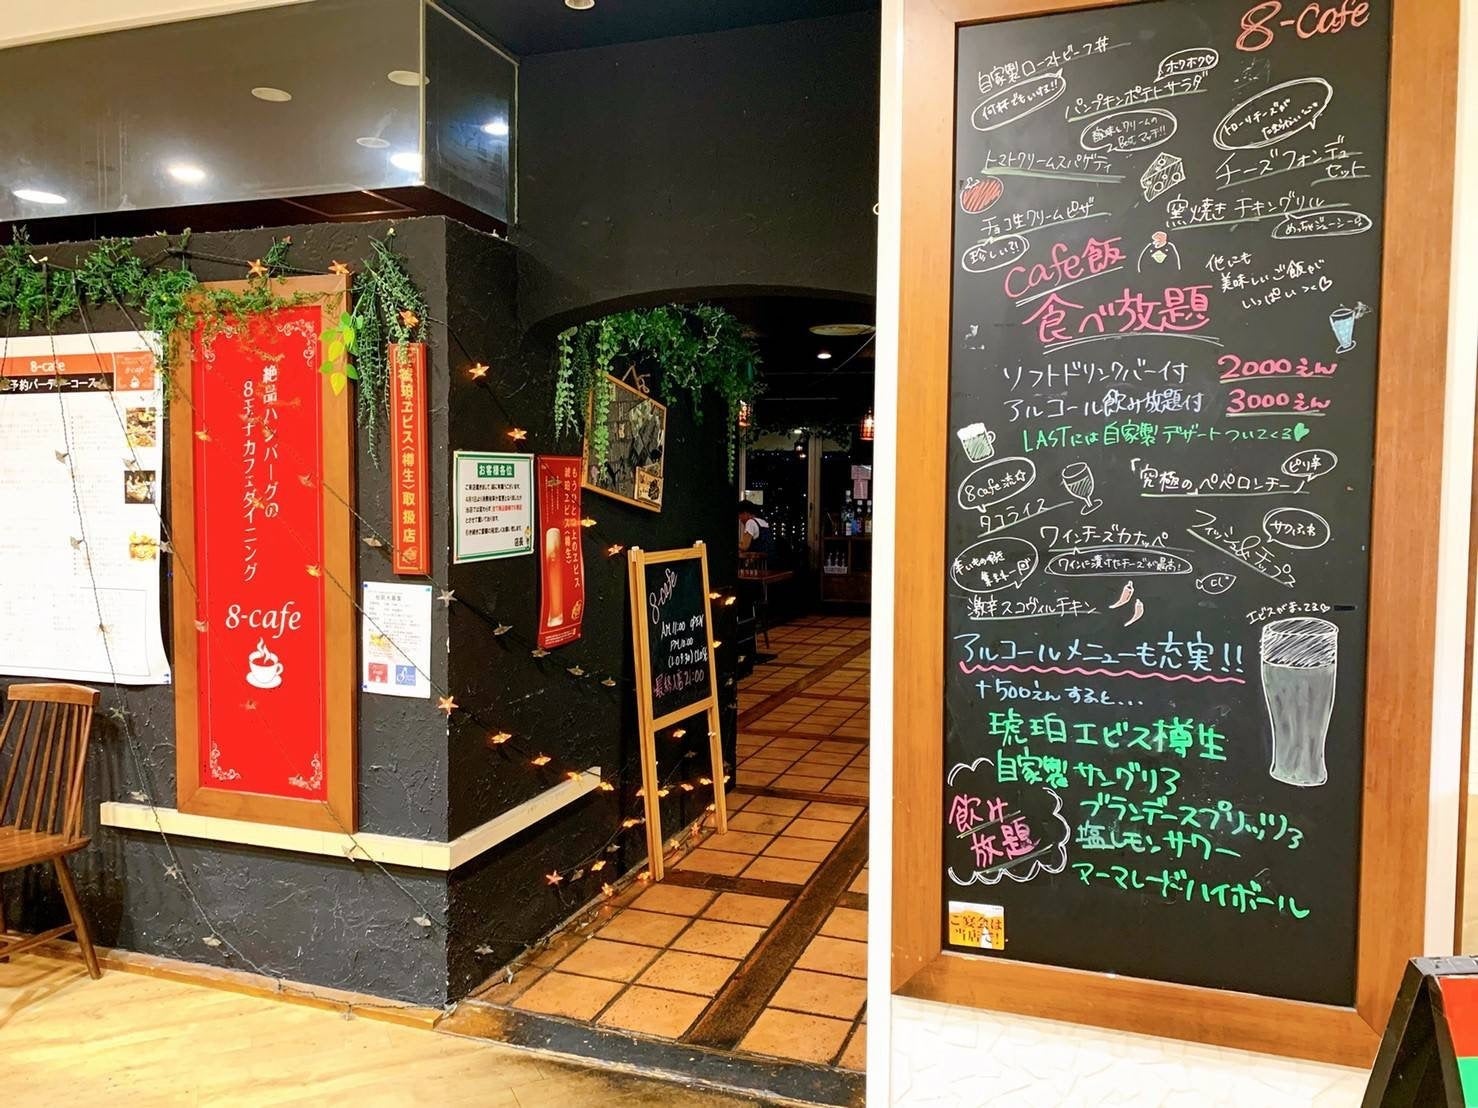 8-cafe
ご予約パーティーコース
絶品ハンバーグの
8エナカフェダイニング
8-cafe
琥珀ヱビス〈樽生〉取扱店
お客様各位
店長
もうひとつ上のヱビス
琥珀ヱビス〈樽生〉
8-cafe
AM 11:00 OPEN
PM 22:00
CLOSE
最終入店 21:00
8-cafe
自家製ローストビーフ丼
何杯でもいける!!
ホクホク♡
パンプキンポテトサラダ
酸味とクリームの
Best マッチ!!
トマトクリームスパゲティ
トローリチーズが
チーズフォンデュ
セット
チョコ生クリームピザ
珍しい?!
窯焼きチキングリル
めっちゃジューシー
cafe飯
食べ放題
他にも
美味しいご飯が
いっぱい
ソフトドリンクバー付 2000えん
アルコール飲み放題付 3000えん
LASTには自家製デザートついてくる♥
8cafe流
タコライス
ピリ辛
「究極の」ペペロンチーノ
ワインチーズカナッペ
ワインに漬けたチーズが最高!
サクふわ
フィッシュ&チップス
辛いもの好き
激辛スコヴィルチキン
エビスがまってる♡
アルコールメニューも充実!!
+500えんすると...
琥珀エビス樽生
自家製サングリア
飲み
放題
ブランデースプリッツァ
塩レモンサワー
マーマレードハイボール
ご宴会は
当店で!